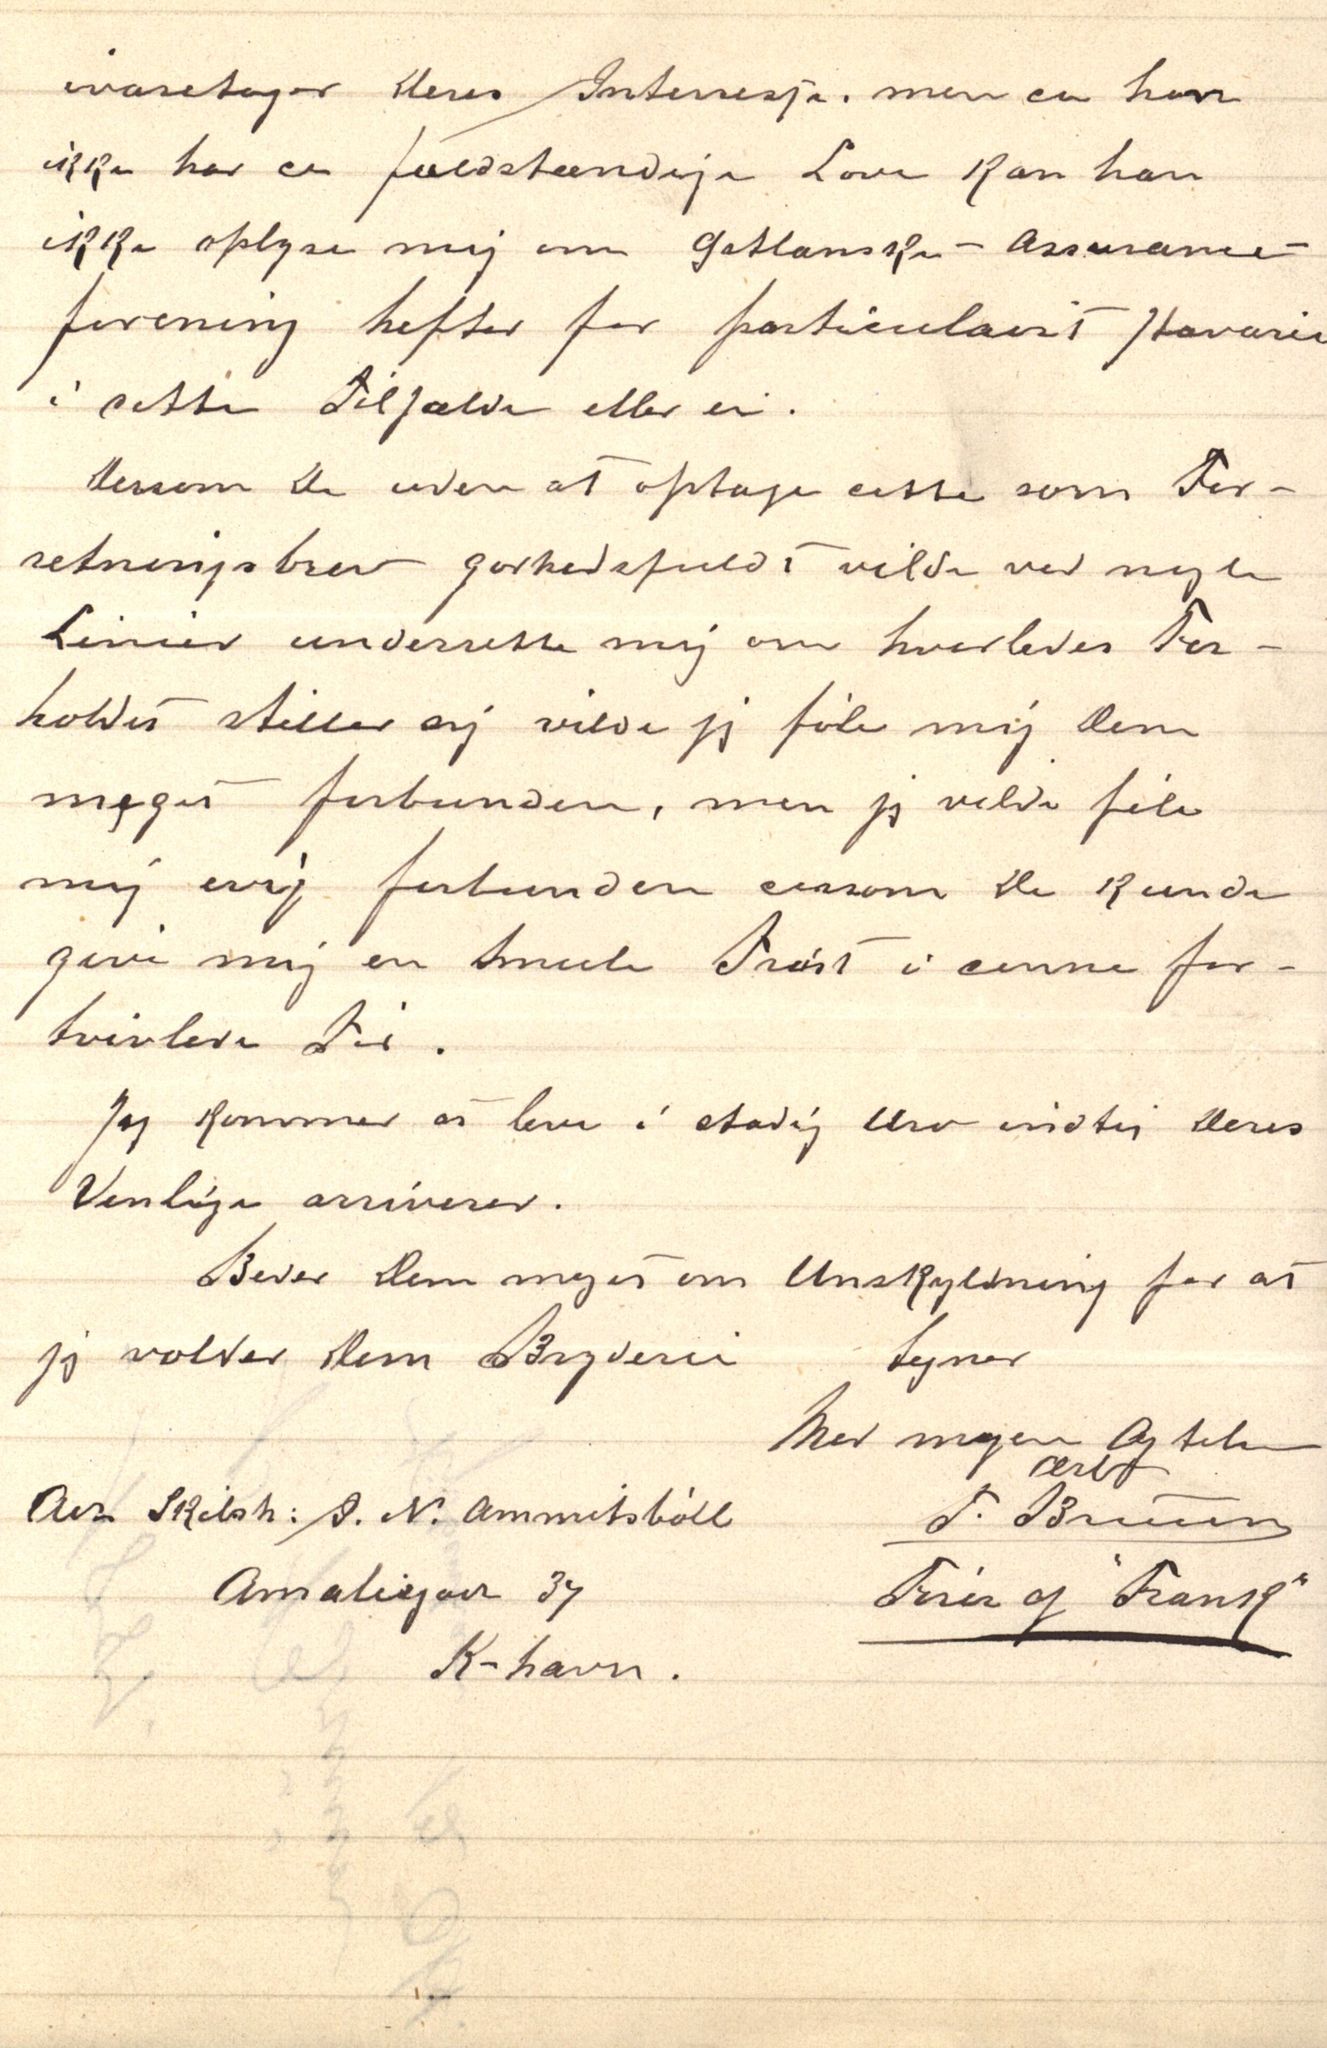 ivaretager Deres Interresse. men da han
ikke har de fuldstændige Love kan han
ikke oplyse mig om Gotlanske - Assurance-
forening hefter for particulairt Havarie
i dette Tilfælde eller ei.
Dersom De uden at optage dette som For-
retningsbrev godhedsfuldt vilde ved nogle
Linier underrette mig om hvorledes For-
holdet stiller sig vilde jeg föle mig Dem
meget forbunden, men jeg vilde föle
mig evig forbunden dersom De kunde
give mig en Smule Tröst i denne for-
tvivlede Tid.
Jeg kommer at leve i stadig Uro indtil Deres
Venlige arriverer.
Beder Dem meget om Undskyldning for at
jeg volder Dem Bryderi tegner
Med megen Agtelse
Ærb
Adr. Skibsh: S. N. Ammitsböll F. Bruun
Amaliegade 37 Förer af "Frank"
K-havn.